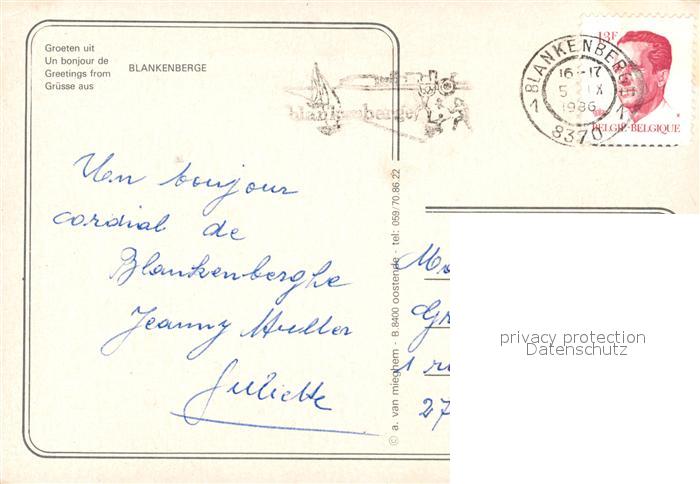 Groeten uit
Un bonjour de
Greetings from
Grüsse aus
BLANKENBERGE
blankenberge
BLANKENBERGE
16-17
5 IX
1986
8370
13F
BELGIE-BELGIQUE
Un bonjour
cordial de
Blankenberghe
Jeanny Muller
Juliette
© a. van mieghem - B 8400 oostende - tel: 059/70.86.22
1
27
privacy protection
Datenschutz